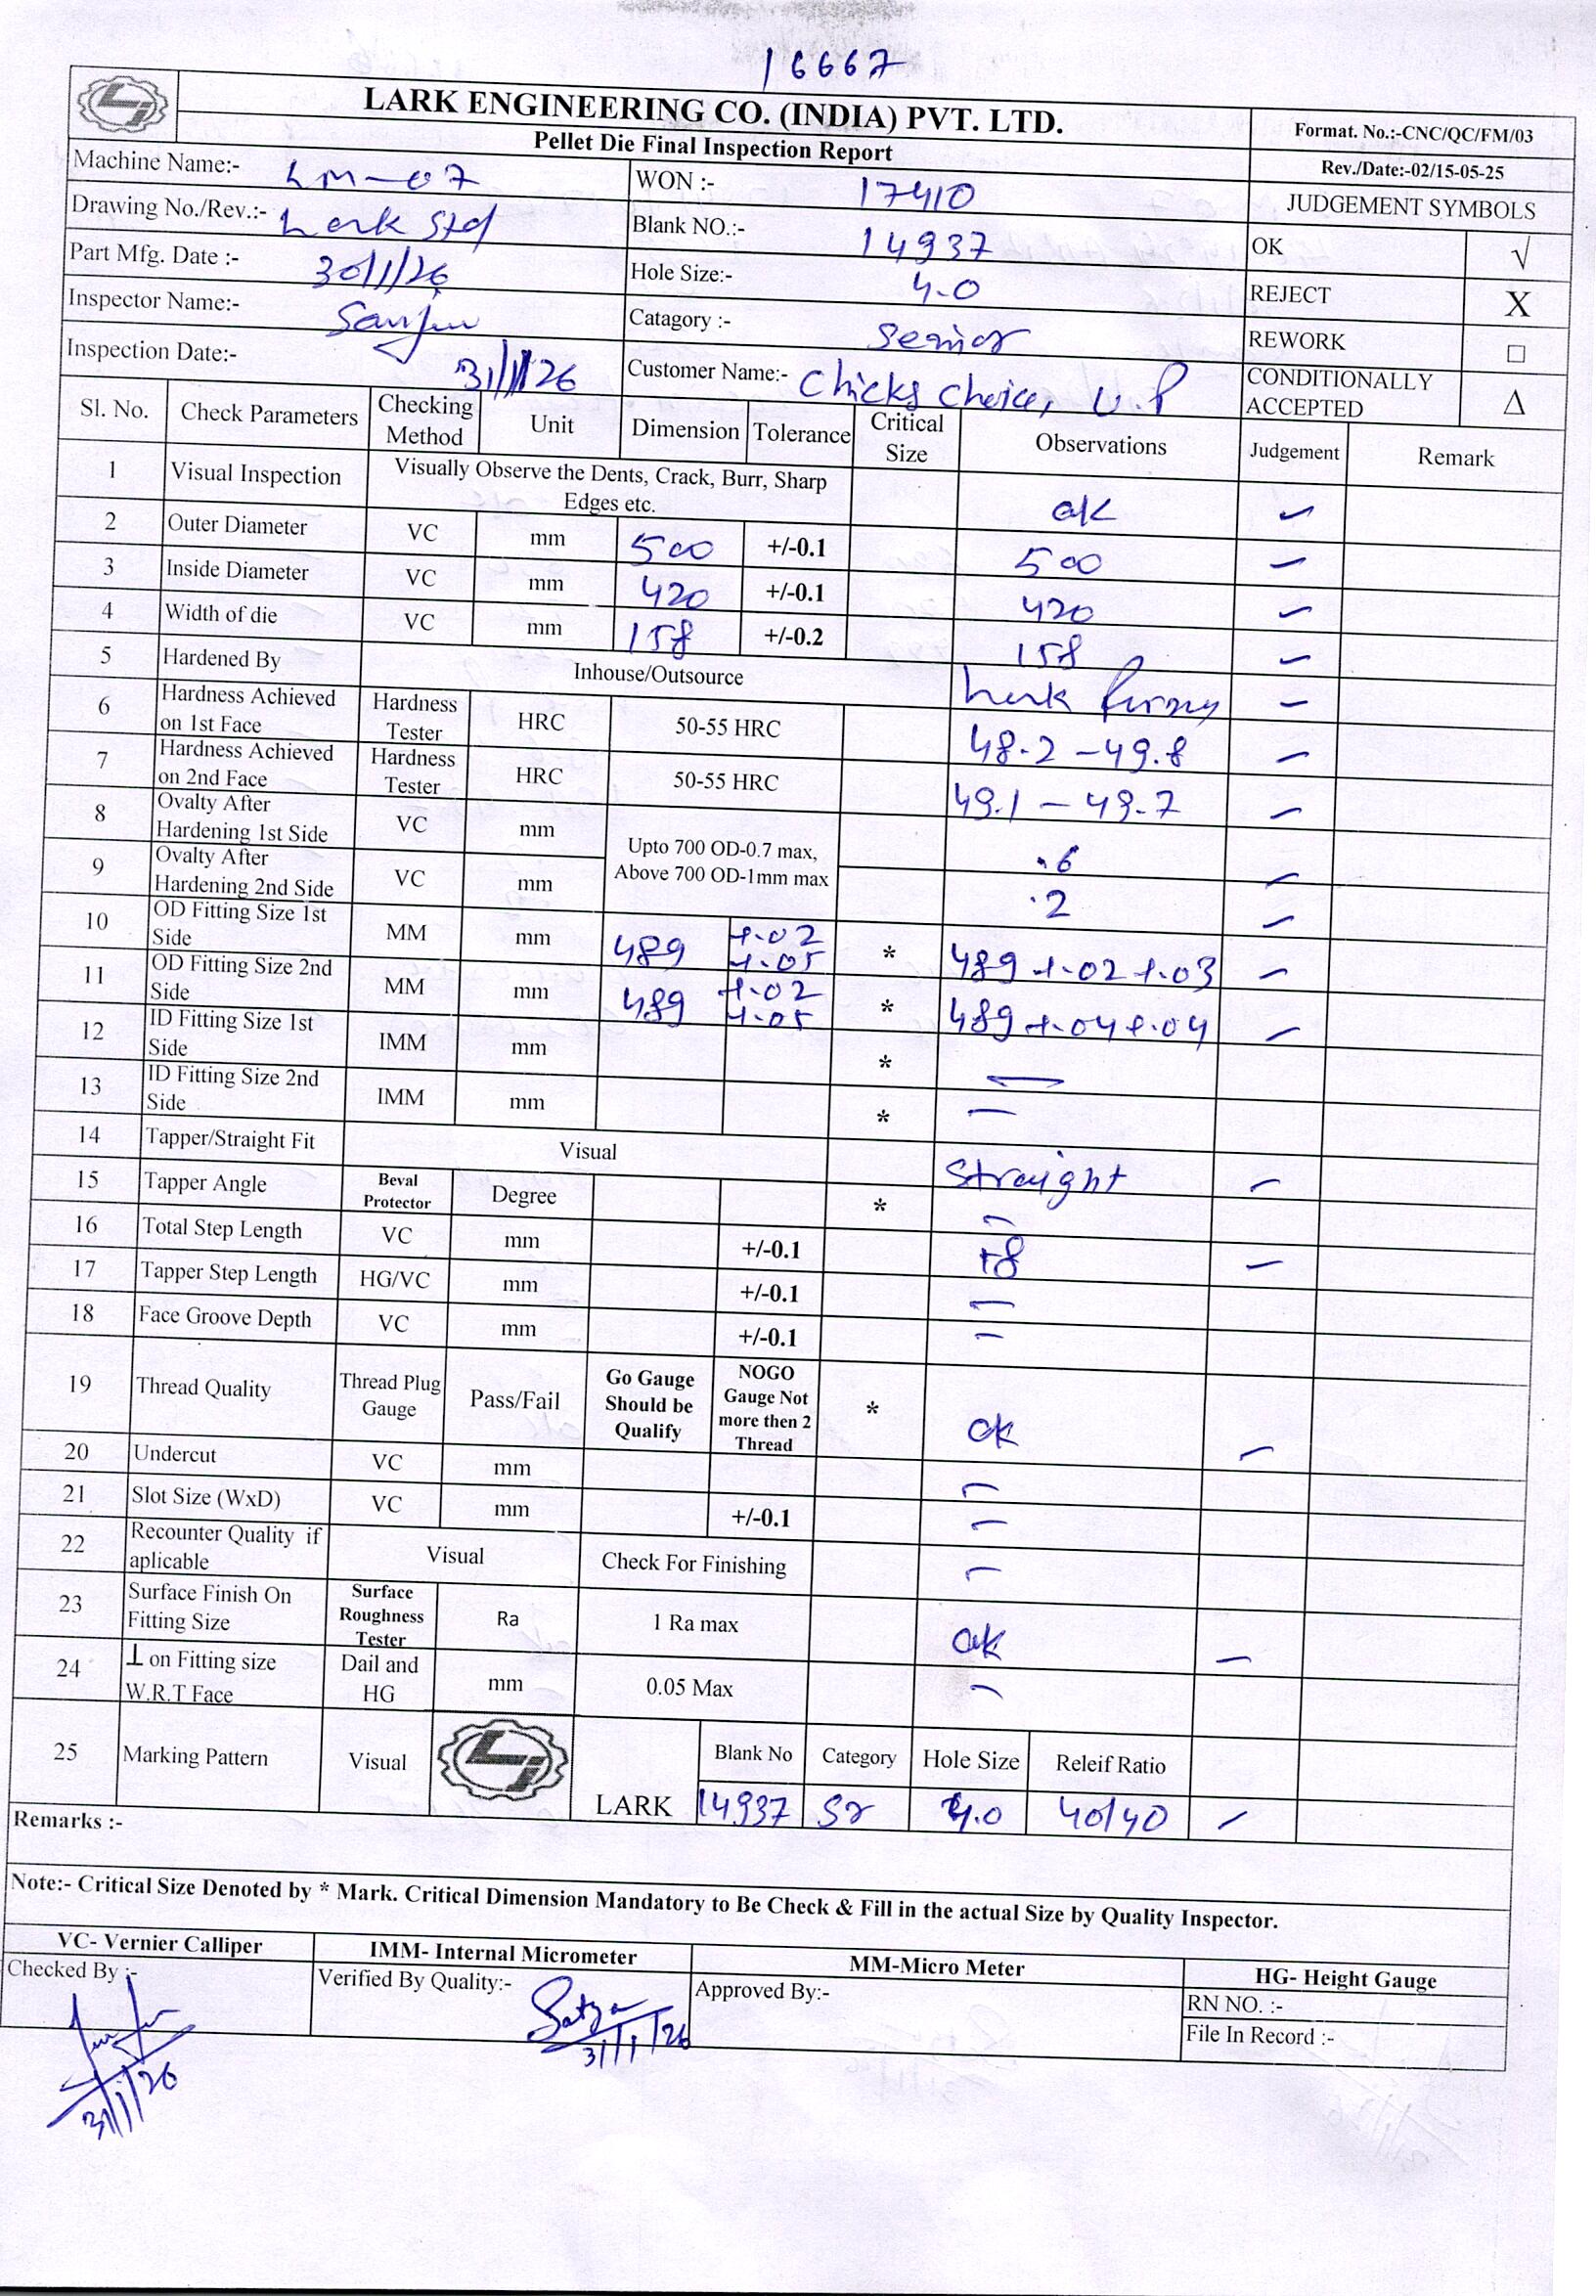 16667
LARK ENGINEERING CO. (INDIA) PVT. LTD.
Pellet Die Final Inspection Report
Format. No.:-CNC/QC/FM/03
Rev./Date:-02/15-05-25
Machine Name:- LM-07
WON :- 17410
JUDGEMENT SYMBOLS
Drawing No./Rev.:- Lark Std
Blank NO.:- 14937
OK √
Part Mfg. Date :- 30/1/26
Hole Size:- 4.0
REJECT X
Inspector Name:- Sanju
Catagory :- Senior
REWORK □
Inspection Date:- 31/1/26
Customer Name:- Chicks Choice, U.P
CONDITIONALLY ACCEPTED Δ
Sl. No. Check Parameters Checking Method Unit Dimension Tolerance Critical Size Observations Judgement Remark
1 Visual Inspection Visually Observe the Dents, Crack, Burr, Sharp Edges etc. ok ✓
2 Outer Diameter VC mm 500 +/-0.1 500 ✓
3 Inside Diameter VC mm 420 +/-0.1 420 ✓
4 Width of die VC mm 158 +/-0.2 158 ✓
5 Hardened By Inhouse/Outsource Lark ✓
6 Hardness Achieved on 1st Face Hardness Tester HRC 50-55 HRC 48.2 - 49.8 ✓
7 Hardness Achieved on 2nd Face Hardness Tester HRC 50-55 HRC 49.1 - 49.7 ✓
8 Ovalty After Hardening 1st Side VC mm Upto 700 OD-0.7 max, Above 700 OD-1mm max .6 ✓
9 Ovalty After Hardening 2nd Side VC mm .2 ✓
10 OD Fitting Size 1st Side MM mm 489 +.02 +.05 * 489 +.02 +.03 ✓
11 OD Fitting Size 2nd Side MM mm 489 +.02 +.05 * 489 +.04 +.04 ✓
12 ID Fitting Size 1st Side IMM mm * —
13 ID Fitting Size 2nd Side IMM mm * —
14 Tapper/Straight Fit Visual Straight ✓
15 Tapper Angle Beval Protector Degree * —
16 Total Step Length VC mm +/-0.1 ✓
17 Tapper Step Length HG/VC mm +/-0.1 —
18 Face Groove Depth VC mm +/-0.1 —
19 Thread Quality Thread Plug Gauge Pass/Fail Go Gauge Should be Qualify NOGO Gauge Not more then 2 Thread * ok ✓
20 Undercut VC mm —
21 Slot Size (WxD) VC mm +/-0.1 —
22 Recounter Quality if aplicable Visual Check For Finishing —
23 Surface Finish On Fitting Size Surface Roughness Tester Ra 1 Ra max ok ✓
24 ⊥ on Fitting size W.R.T Face Dail and HG mm 0.05 Max —
25 Marking Pattern Visual LARK Blank No Category Hole Size Releif Ratio
14937 Sr 4.0 40/40 ✓
Remarks :-
Note:- Critical Size Denoted by * Mark. Critical Dimension Mandatory to Be Check & Fill in the actual Size by Quality Inspector.
VC- Vernier Calliper IMM- Internal Micrometer MM-Micro Meter HG- Height Gauge
Checked By :- Verified By Quality:- Approved By:- RN NO. :-
File In Record :-
Satya
31/1/26
31/1/26